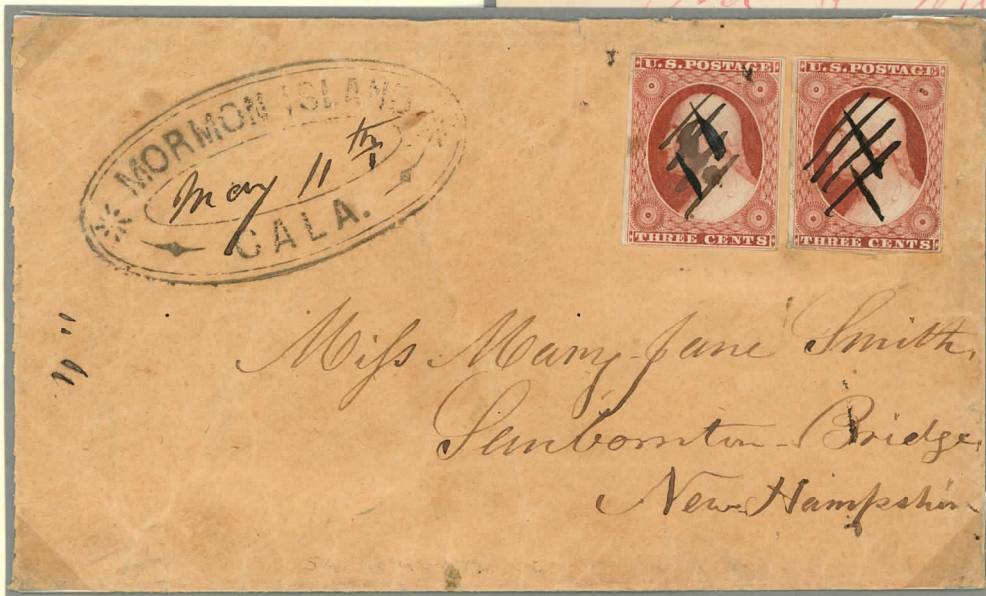 MORMON ISLAND
May 11th
CALA.
U.S. POSTAGE
THREE CENTS
U.S. POSTAGE
THREE CENTS
Miss Mary Jane Smith,
Sanbornton Bridge
New Hampshire